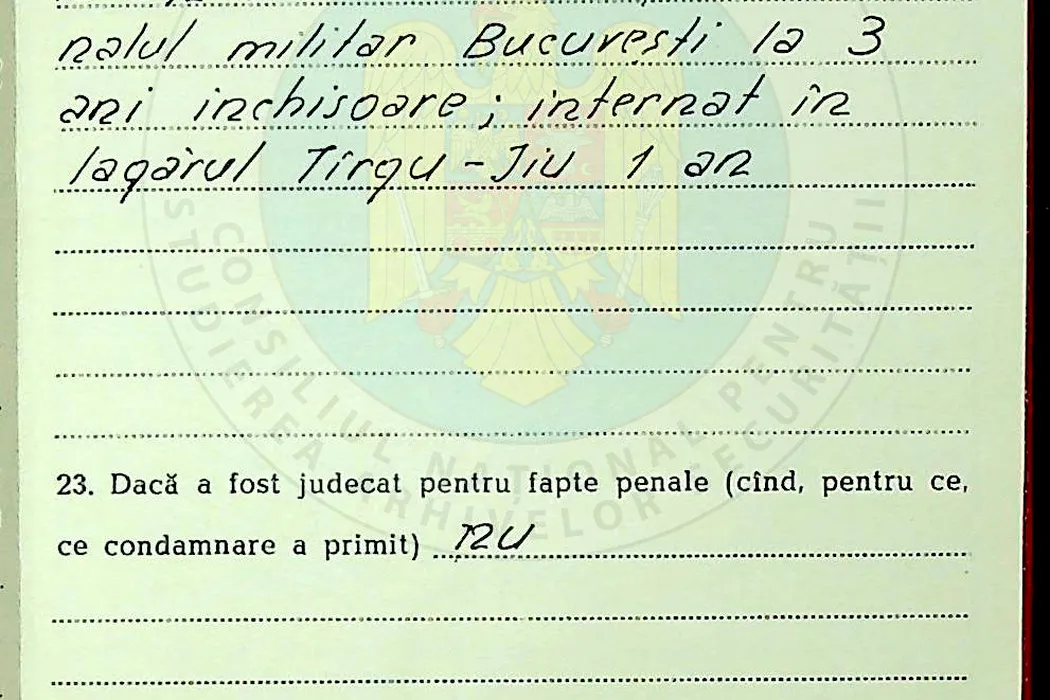 nalul militar București la 3
ani inchisoare; internat în
lagărul Tîrgu-Jiu 1 an
CONSILIUL NAȚIONAL PENTRU
STUDIEREA ARHIVELOR SECURITĂȚII
23. Dacă a fost judecat pentru fapte penale (cînd, pentru ce,
ce condamnare a primit) NU